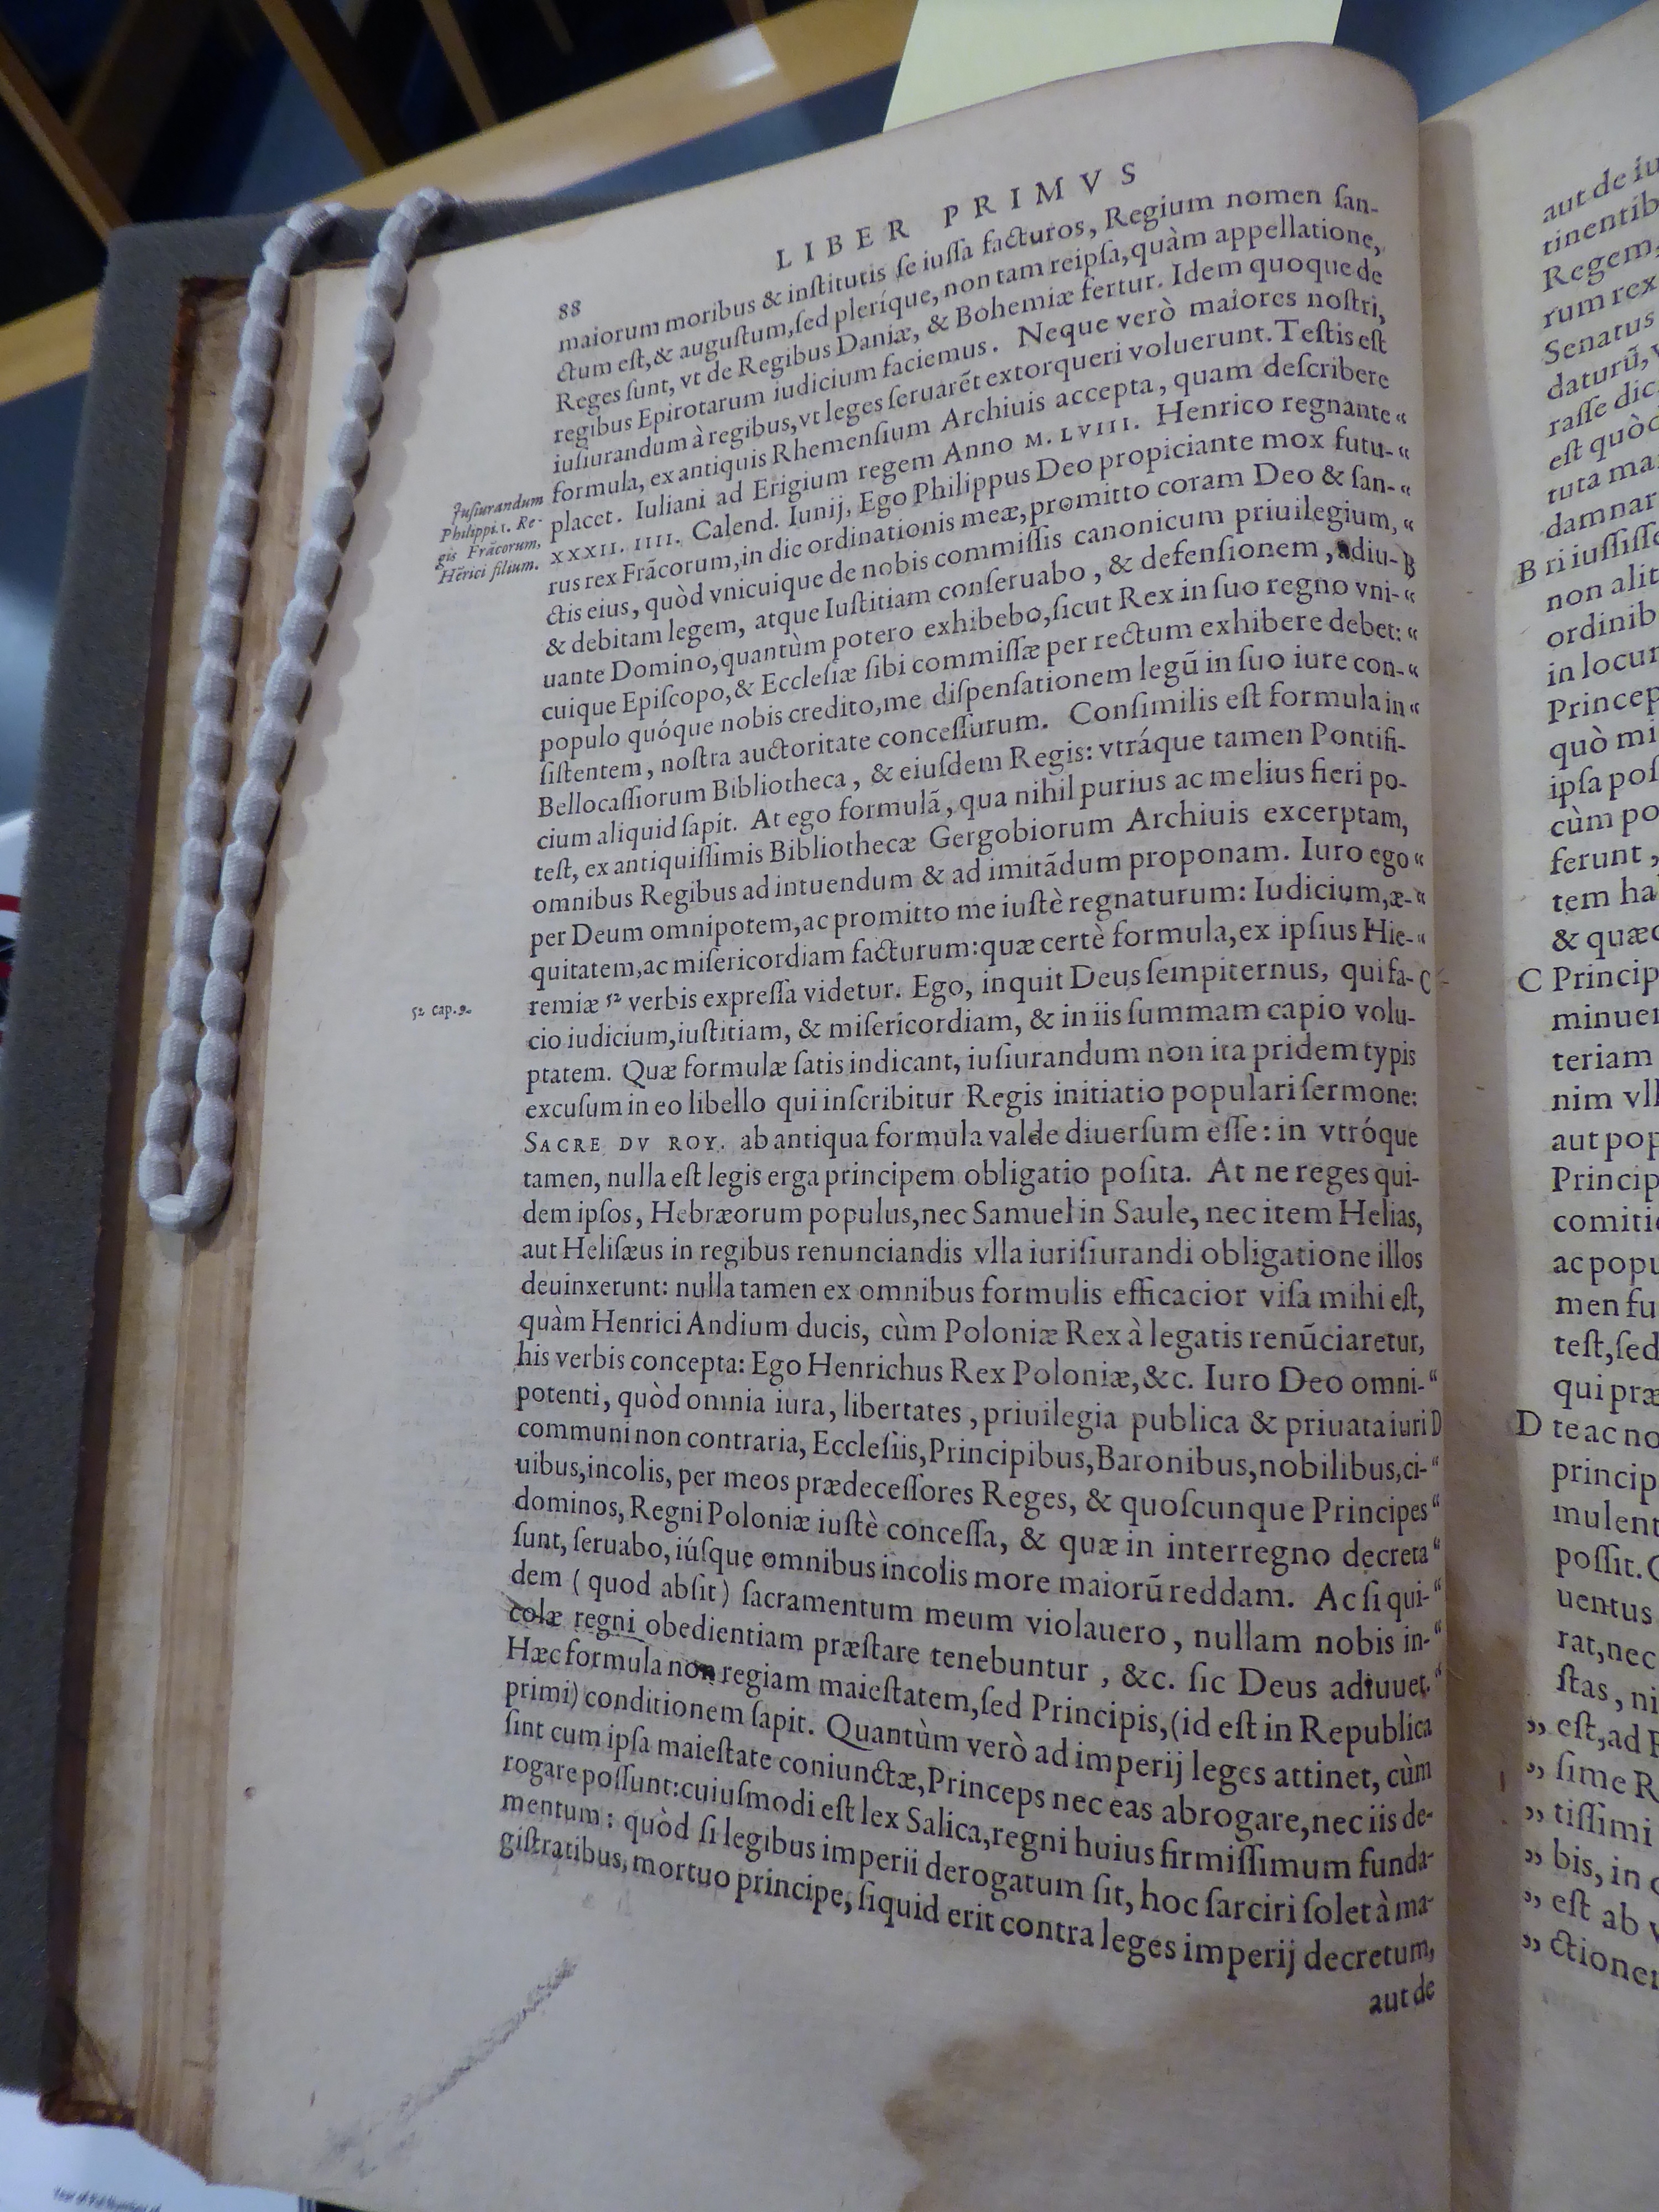 LIBER PRIMVS
88
maiorum moribus & inſtitutis ſe iuſſa facturos, Regium nomen ſan-
ctum eſt, & auguſtum, ſed plerique, non tam reipſa, quàm appellatione,
Reges ſunt, vt de Regibus Daniæ, & Bohemiæ fertur. Idem quoque de
regibus Epirotarum iudicium faciemus. Neque verò maiores noſtri,
iuſiurandum à regibus, vt leges ſeruarẽt extorqueri voluerunt. Teſtis eſt
formula, ex antiquis Rhemenſium Archiuis accepta, quam deſcribere
placet. Iuliani ad Erigium regem Anno M. LVIII. Henrico regnante “
XXXII. IIII. Calend. Iunij, Ego Philippus Deo propiciante mox futu- “
rus rex Frãcorum, in die ordinationis meæ, promitto coram Deo & ſan- “
ctis eius, quòd vnicuique de nobis commiſſis canonicum priuilegium, “
& debitam legem, atque Iuſtitiam conſeruabo, & defenſionem, adiu- B
uante Domino, quantùm potero exhibebo, ſicut Rex in ſuo regno vni- “
cuique Epiſcopo, & Eccleſiæ ſibi commiſſæ per rectum exhibere debet: “
populo quóque nobis credito, me diſpenſationem legũ in ſuo iure con- “
ſiſtentem, noſtra auctoritate conceſſurum. Conſimilis eſt formula in “
Bellocaſſiorum Bibliotheca, & eiuſdem Regis: vtráque tamen Pontifi-
cium aliquid ſapit. At ego formulã, qua nihil purius ac melius fieri po-
teſt, ex antiquiſſimis Bibliothecæ Gergobiorum Archiuis excerptam,
omnibus Regibus ad intuendum & ad imitãdum proponam. Iuro ego “
per Deum omnipotem, ac promitto me iuſtè regnaturum: Iudicium, æ- “
quitatem, ac miſericordiam facturum: quæ certè formula, ex ipſius Hie- “
remiæ 52 verbis expreſſa videtur. Ego, inquit Deus ſempiternus, qui fa- C
cio iudicium, iuſtitiam, & miſericordiam, & in iis ſummam capio volu-
ptatem. Quæ formulæ ſatis indicant, iuſiurandum non ita pridem typis
excuſum in eo libello qui inſcribitur Regis initiatio populari ſermone:
SACRE DV ROY. ab antiqua formula valde diuerſum eſſe: in vtróque
tamen, nulla eſt legis erga principem obligatio poſita. At ne reges qui-
dem ipſos, Hebræorum populus, nec Samuel in Saule, nec item Helias,
aut Heliſæus in regibus renunciandis vlla iuriſiurandi obligatione illos
deuinxerunt: nulla tamen ex omnibus formulis efficacior viſa mihi eſt,
quàm Henrici Andium ducis, cùm Poloniæ Rex à legatis renũciaretur,
his verbis concepta: Ego Henrichus Rex Poloniæ, &c. Iuro Deo omni- “
potenti, quòd omnia iura, libertates, priuilegia publica & priuata iuri D
communi non contraria, Eccleſiis, Principibus, Baronibus, nobilibus, ci- “
uibus, incolis, per meos prædeceſſores Reges, & quoſcunque Principes “
dominos, Regni Poloniæ iuſtè conceſſa, & quæ in interregno decreta “
ſunt, ſeruabo, iúſque omnibus incolis more maiorũ reddam. Ac ſi qui- “
dem (quod abſit) ſacramentum meum violauero, nullam nobis in- “
colæ regni obedientiam præſtare tenebuntur, &c. ſic Deus adiuuet. “
Hæc formula non regiam maieſtatem, ſed Principis, (id eſt in Republica
primi) conditionem ſapit. Quantùm verò ad imperij leges attinet, cùm
ſint cum ipſa maieſtate coniunctæ, Princeps nec eas abrogare, nec iis de-
rogare poſſunt: cuiuſmodi eſt lex Salica, regni huius firmiſſimum funda-
mentum: quòd ſi legibus imperii derogatum ſit, hoc ſarciri ſolet à ma-
giſtratibus, mortuo principe, ſiquid erit contra leges imperij decretum,
aut de
Juſiurandum
Philippi. 1. Re-
gis Frãcorum,
Hẽrici filium.
52 cap. 9.
aut de iu
tinentib
Regem,
rum rex
Senatus
daturũ, v
raſſe dic
eſt quòd
tuta ma
damnar
B ri iuſſiſſe
non alit
ordinib
in locur
Princep
quò mi
ipſa poſ
cùm po
ferunt,
tem ha
& quæc
C Princip
minuer
teriam
nim vll
aut pop
Princip
comitii
ac popu
men fu
teſt, ſed
qui præ
D te ac no
princip
mulent
poſſit. C
uentus
rat, nec
ſtas, ni
” eſt, ad
” ſime R
” tiſſimi
” bis, in
” eſt ab v
” ctioner